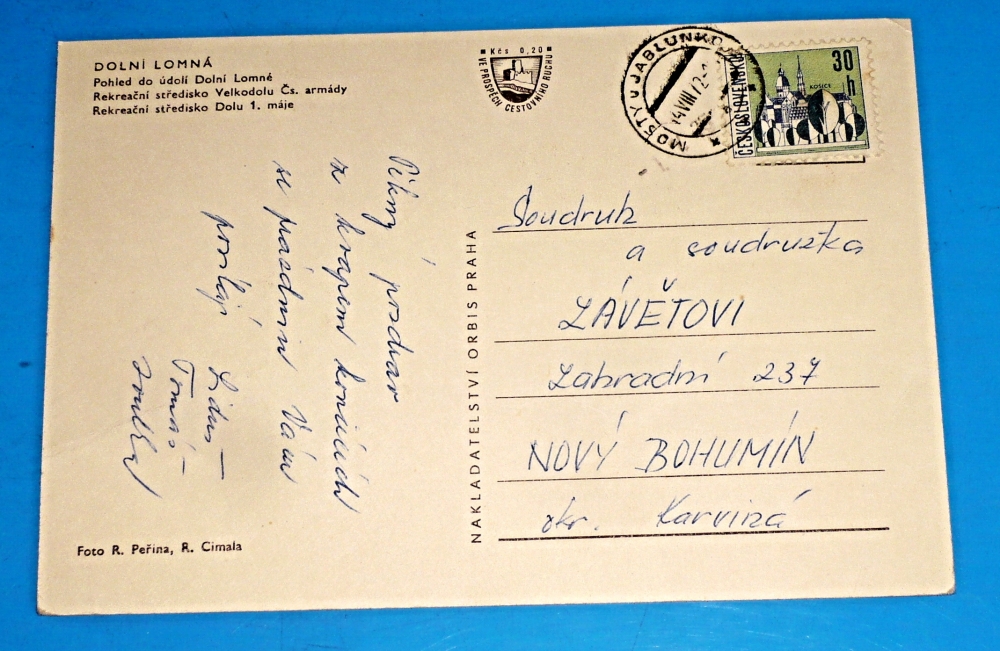 DOLNÍ LOMNÁ
Pohled do údolí Dolní Lomné
Rekreační středisko Velkodolu Čs. armády
Rekreační středisko Dolu 1. máje
Kčs 0,20
VE PROSPĚCH CESTOVNÍHO RUCHU
MOSTY U JABLUNKO
14.VIII.72
ČESKOSLOVENSKO
30 h
KOŠICE
Pěkný pozdrav
z krajem končících
se prázdnin Vám
posílají
Lidus
Tomáš
NAKLADATELSTVÍ ORBIS PRAHA
Soudruh
a soudružka
ZÁVĚTOVI
Zahradní 237
NOVÝ BOHUMÍN
okr. Karviná
Foto R. Peřina, R. Cimala